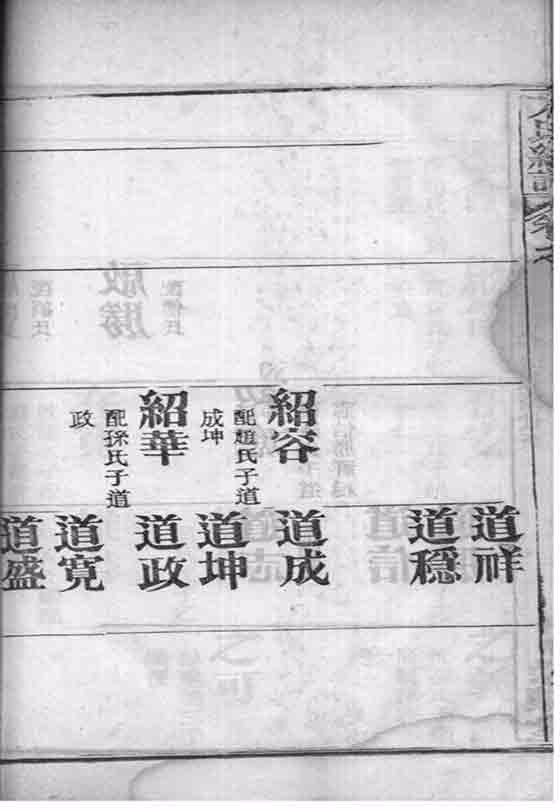 紹容
配趙氏子道
成坤
紹華
配孫氏子道
政
道祥
道穩
道成
道坤
道政
道寬
道盛